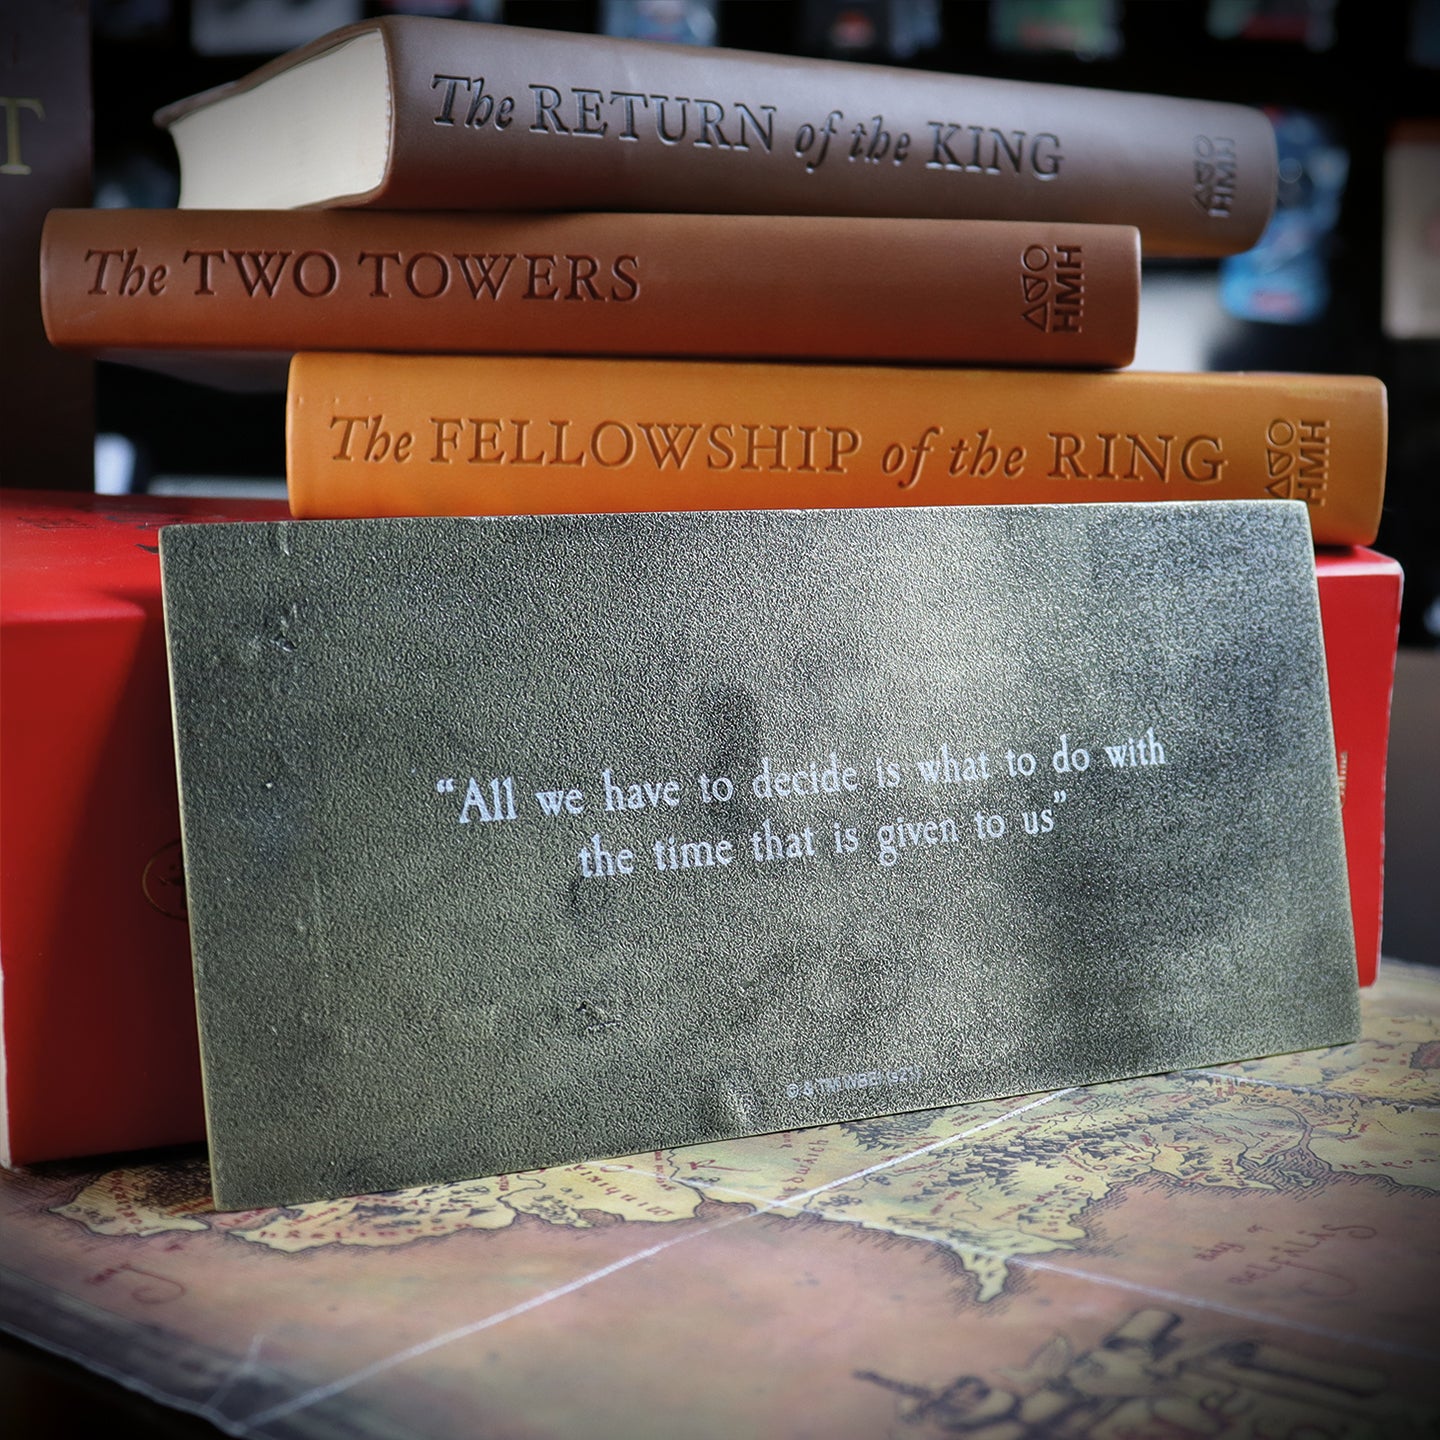 T
The RETURN of the KING
HMH
The TWO TOWERS
HMH
The FELLOWSHIP of the RING
HMH
“All we have to decide is what to do with
the time that is given to us”
Bay of
Belfalas